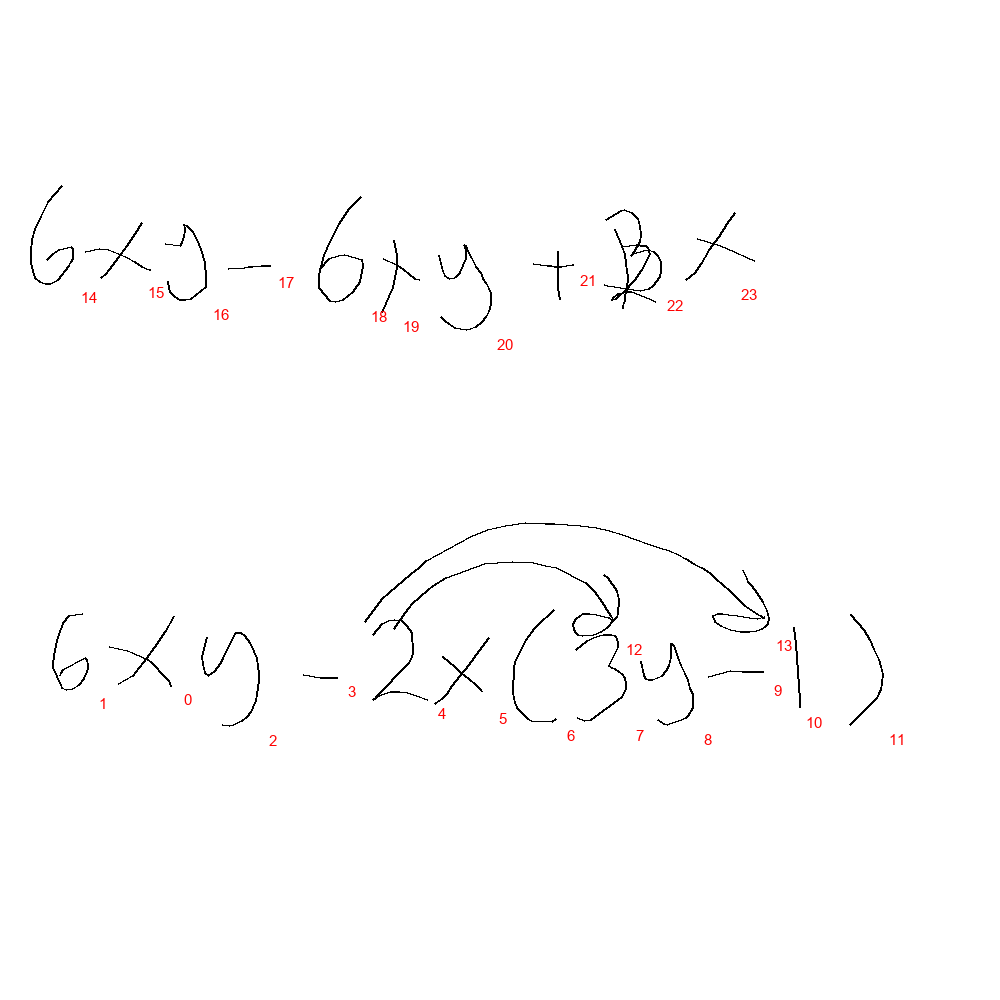 6xy - 6xy + x
14 15 16 17 18 19 20 21 22 23
6xy - 2x(3y - 1)
1 0 2 3 4 5 6 12 7 8 9 13 10 11